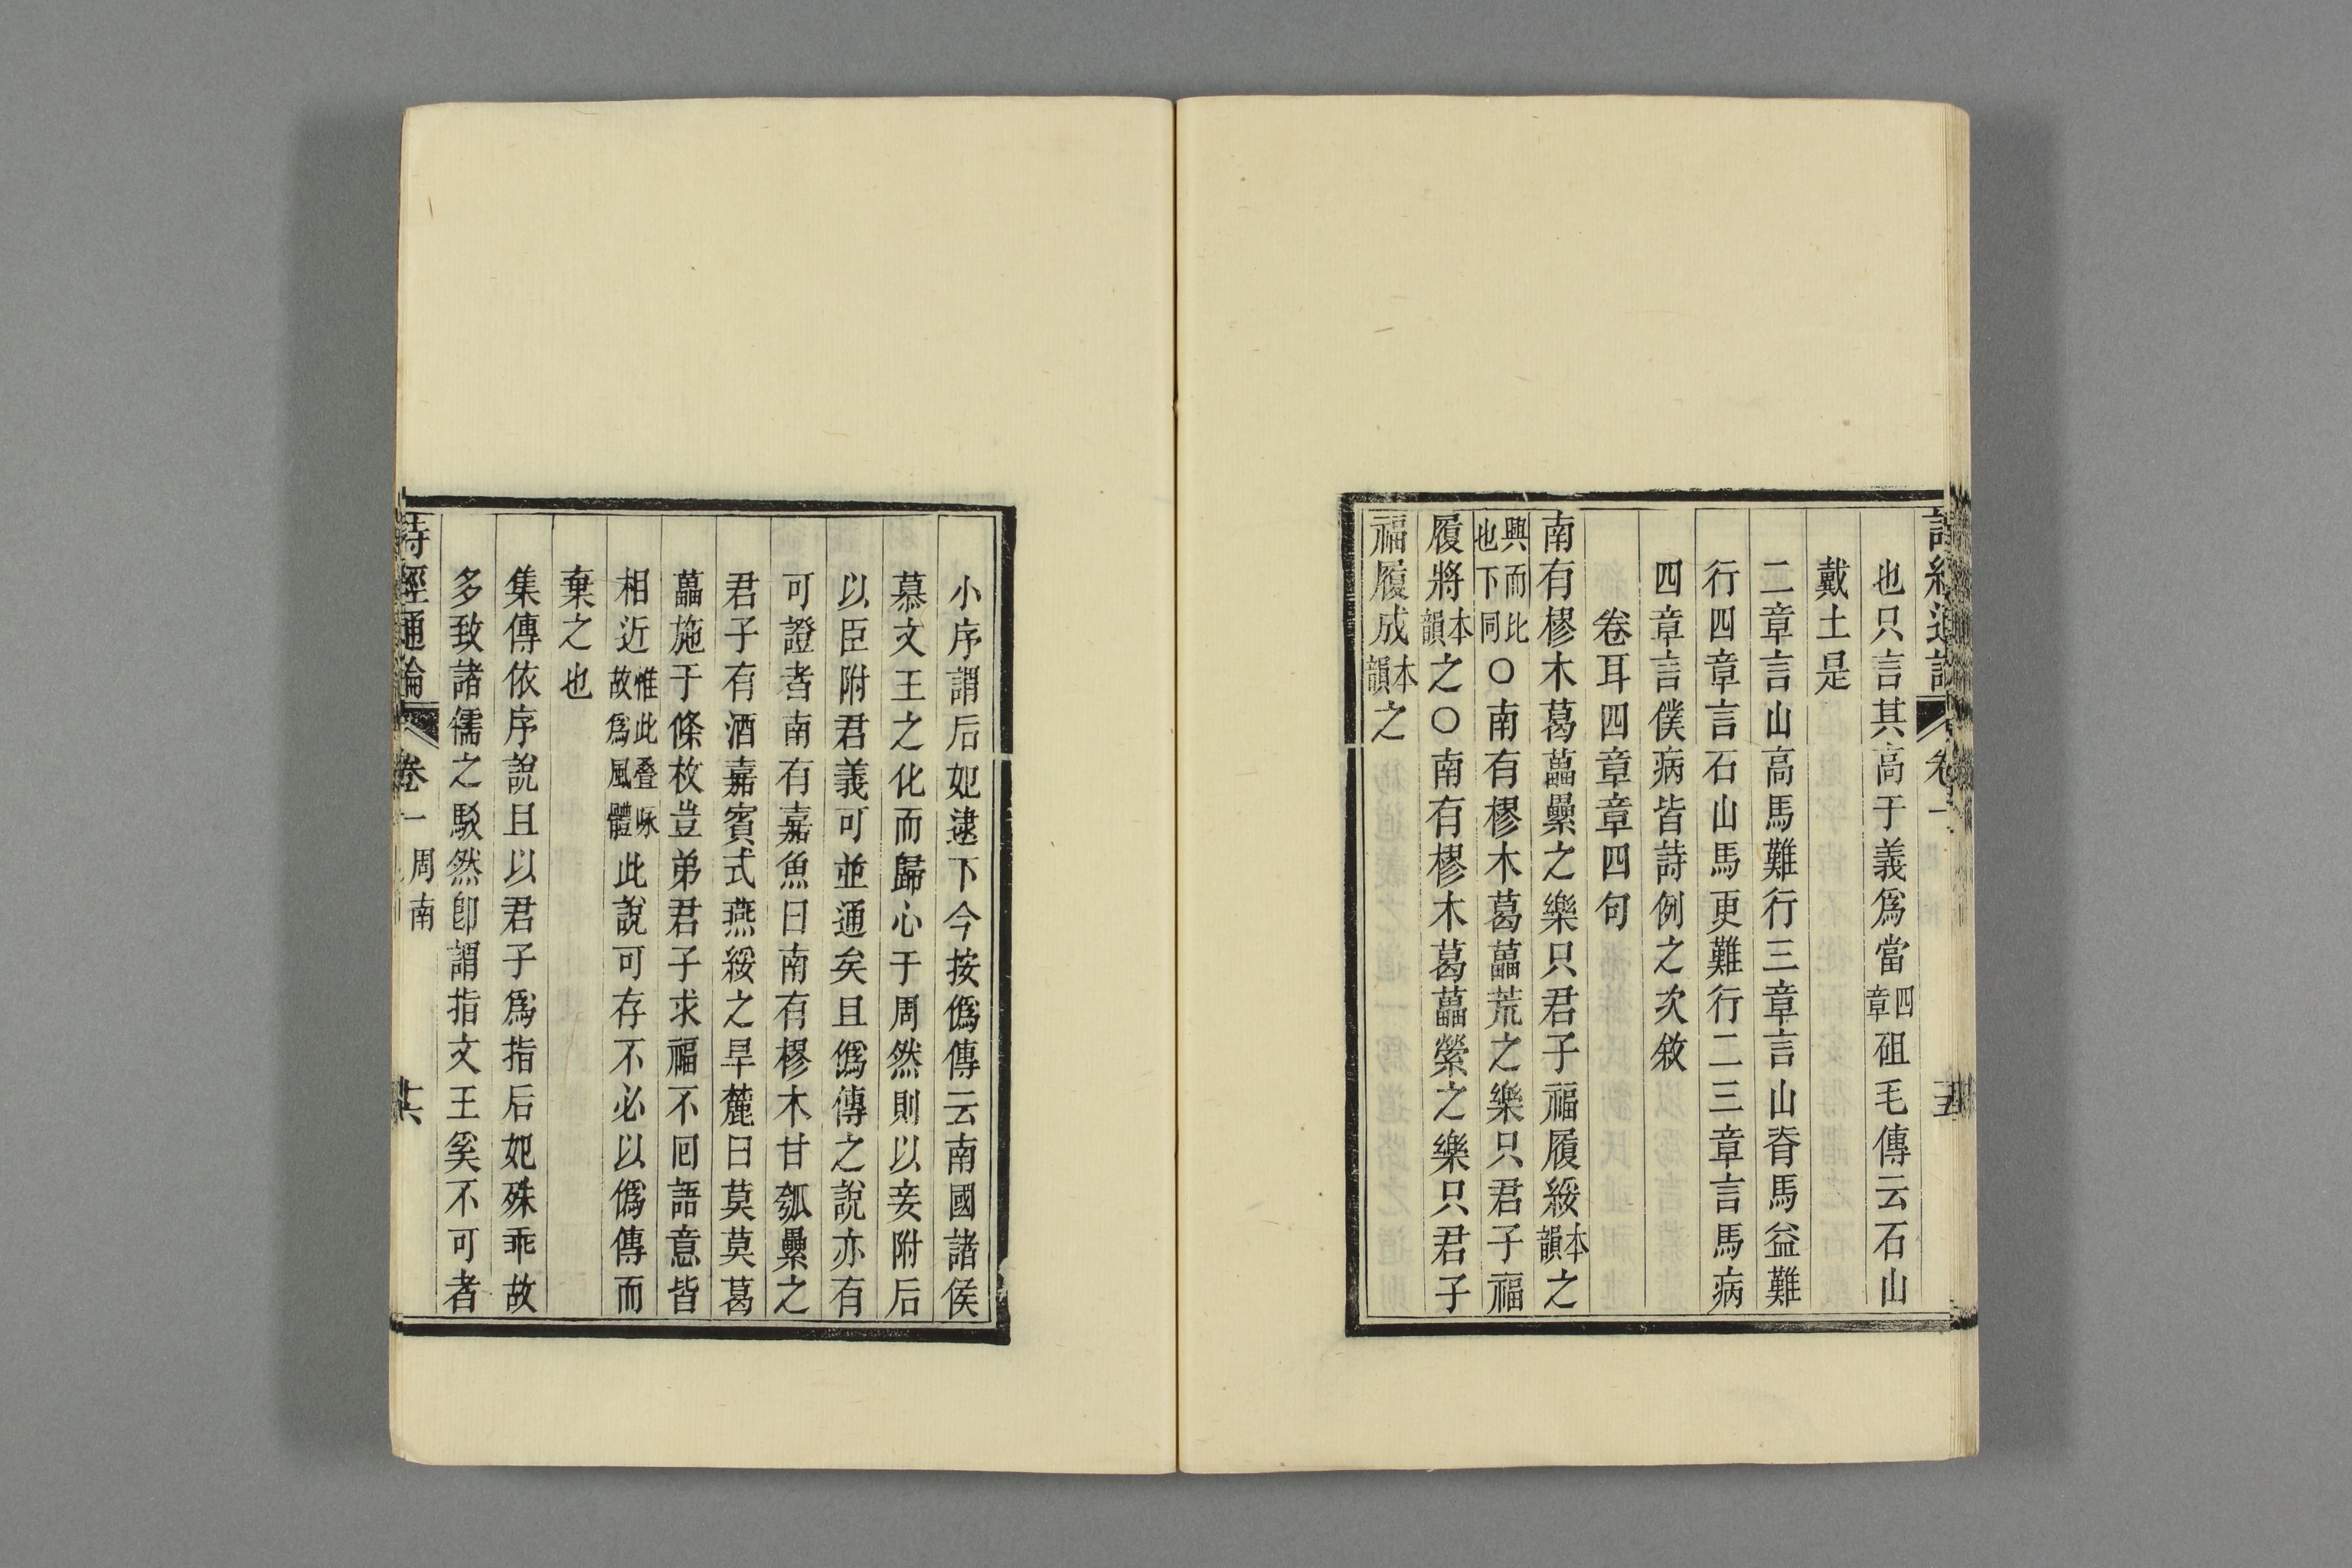 也只言其高于義爲當四章砠毛傳云石山
戴土是
二章言山高馬難行三章言山脊馬益難
行四章言石山馬更難行二三章言馬病
四章言僕病皆詩例之次敘
卷耳四章章四句
南有樛木葛藟纍之樂只君子福履綏本韻之
興而比也下同○南有樛木葛藟荒之樂只君子福
履將本韻之○南有樛木葛藟縈之樂只君子
福履成本韻之
小序謂后妃逮下今按僞傳云南國諸侯
慕文王之化而歸心于周然則以妾附后
以臣附君義可並通矣且僞傳之說亦有
可證者南有嘉魚曰南有樛木甘瓠纍之
君子有酒嘉賓式燕綏之旱麓曰莫莫葛
藟施于條枚豈弟君子求福不回語意皆
相近惟此叠咏故爲風體此說可存不必以僞傳而
棄之也
集傳依序說且以君子爲指后妃殊乖故
多致諸儒之駁然卽謂指文王奚不可者
詩經通論 卷一 周南 十六